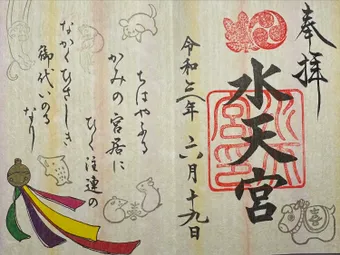 奉拝
水天宮
令和三年 六月十九日
ちはやふる
かみの宮居に
ひく注連の
なかくひさしき
御代いのる
なり